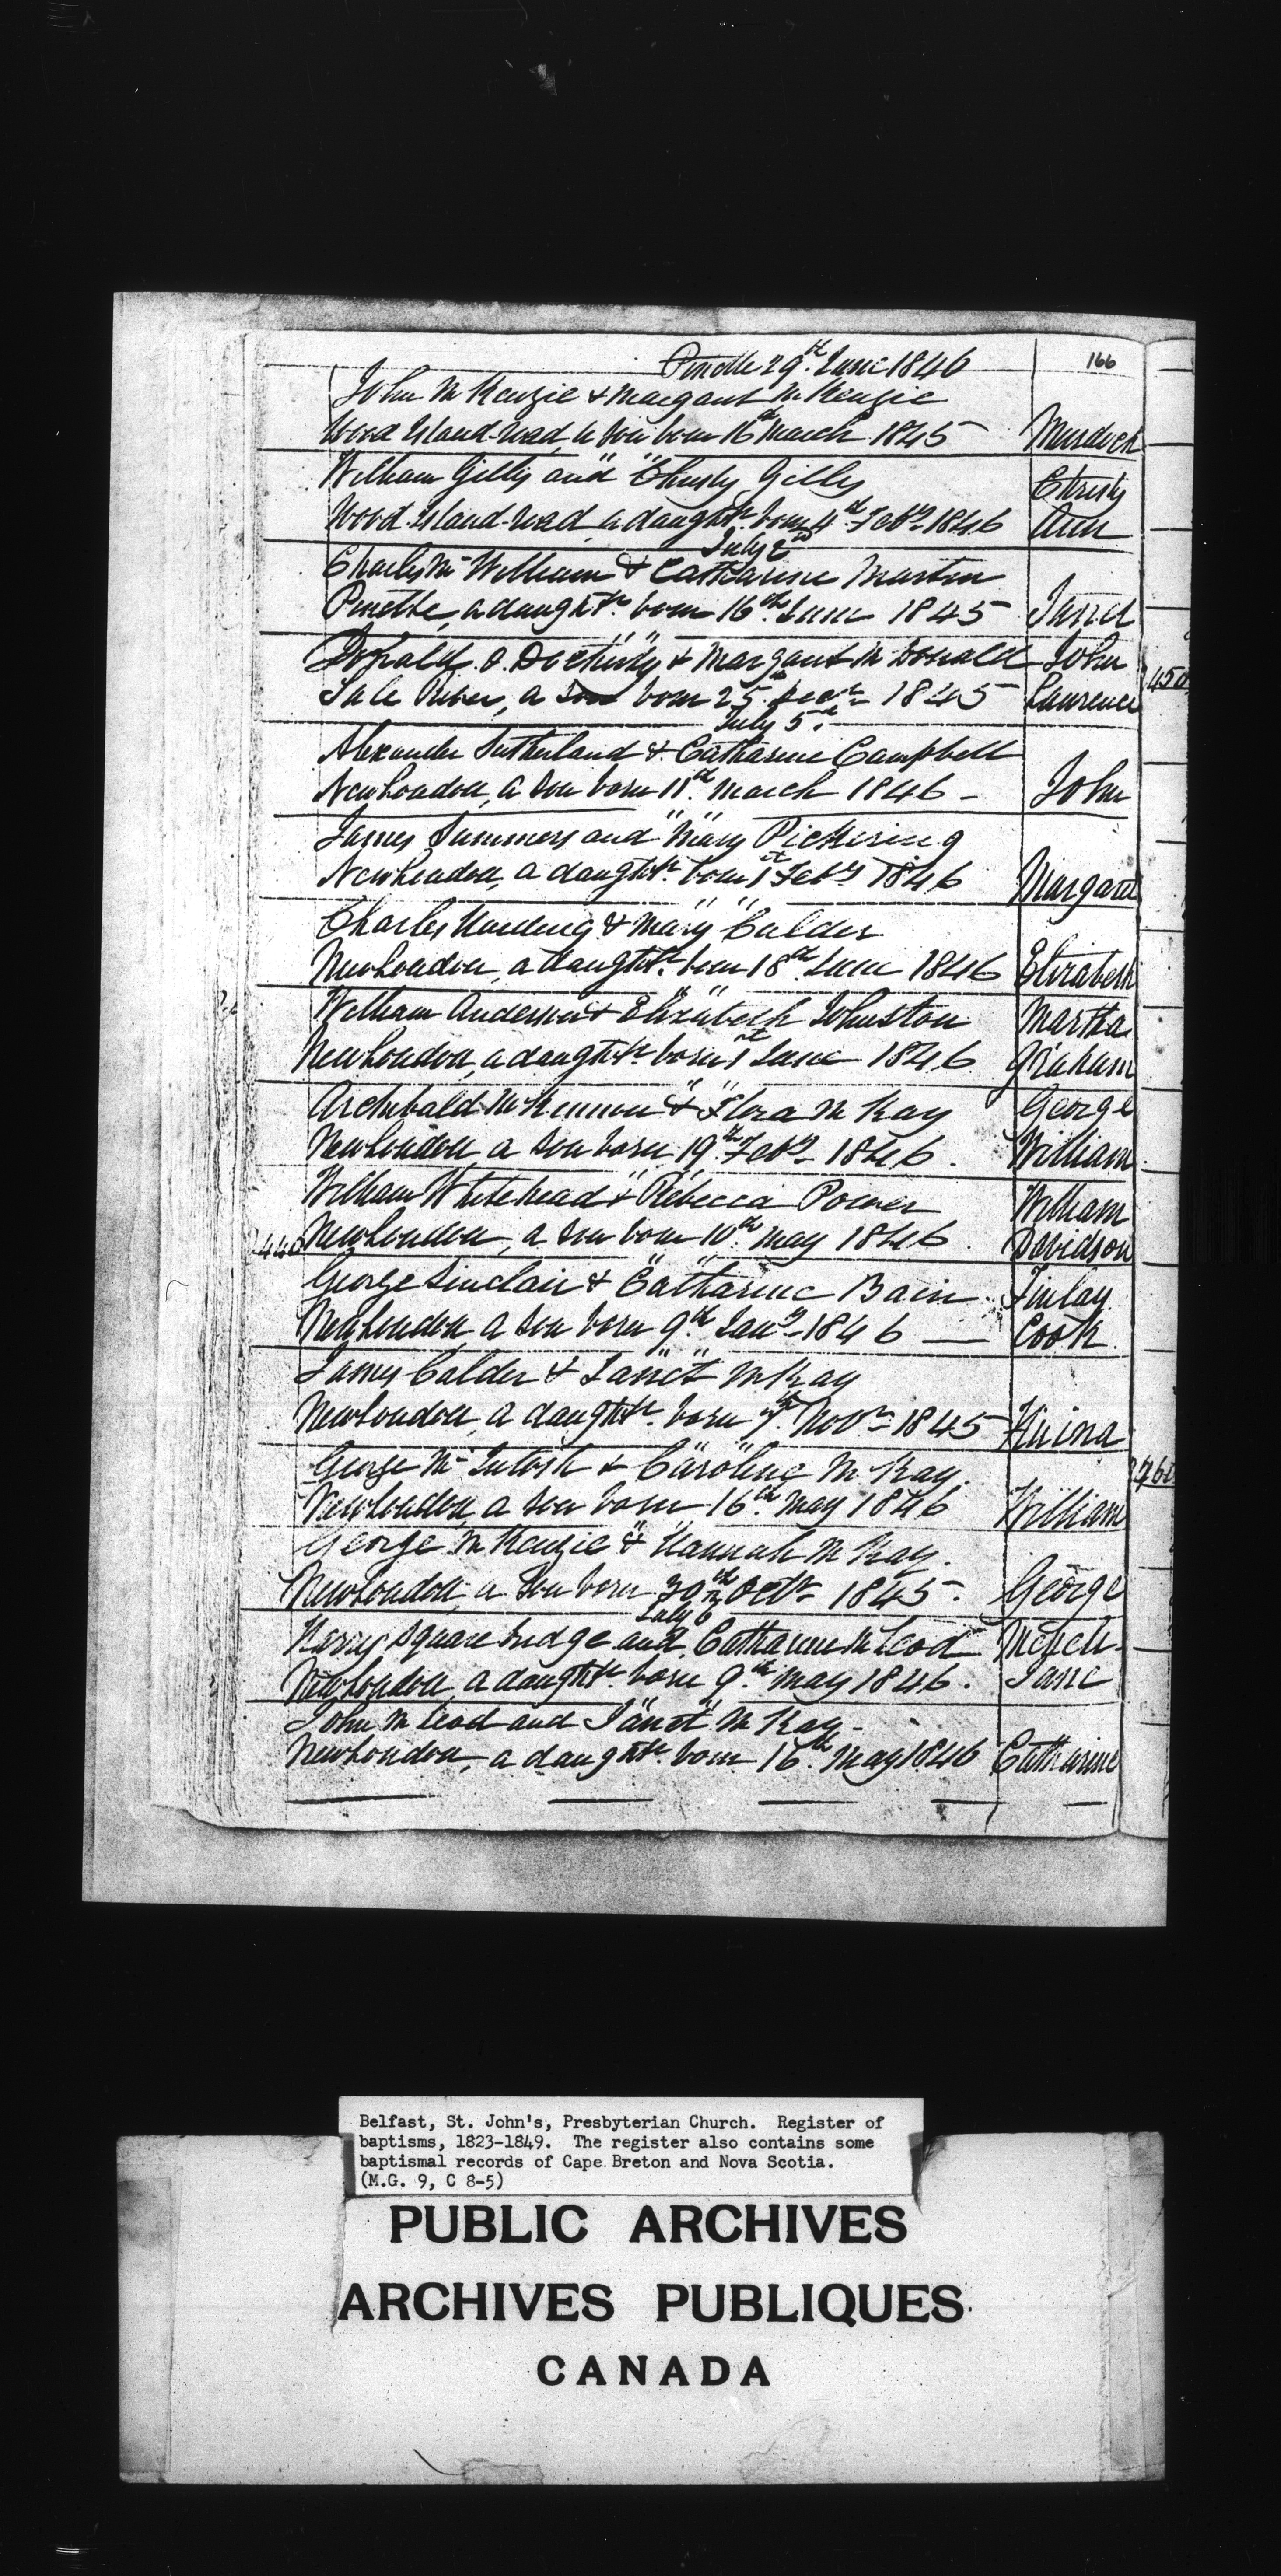 166
Pinette 29th June 1846
John McKenzie & Margaret McKenzie
Wood Island-road, a son born 16th March 1845 Murdoch
William Gillis and Christy Gillis Christy
Wood-Island-road, a daughtr. born 4th Feby. 1846 Ann
July 2nd
Charles McWilliam & Catharine Martin
Pinette, a daughtr. born 16th June 1845 Janet
" "
Donald O. Docherty & Margaret McDonald John
River, a son born 25th Decr. 1845 Lawrence
450
July 5th
Alexander Sutherland & Catharine Campbell
New London, a son born 11th March 1846 - John
" "
James Summers and Mary Pickering
New London, a daughtr. born 1st Feby 1846 Margaret
" "
Charles Harding & Mary Calder
New London, a daughtr. born 18th June 1846 Elizabeth
" "
William Anderson & Elizabeth Johnston Martha
New London, a daughtr. born 1st June 1846 Graham
" "
Archibald McKinnon & Flora McKay George
New London a son born 19th Feby. 1846. William
" "
William Whitehead & Rebecca Power William
New London, a son born 10th May 1846. Davidson
" "
George Sinclair & Catharine Bain Finlay
New London, a son born 9th Jany. 1846 — Cook
" "
James Calder & Janet McKay
New London, a daughtr. born 7th Novr. 1845
" "
George McIntosh & Caroline McKay.
New London, a son born 16th May 1846 William
"
George McKenzie & Hannah McKay.
New London, a son born 30th Octr. 1845. George
July 6th
Square bridge and Catharine McLeod
New London, a daughtr. born 9th May 1846. Jane
" "
John McLeod and Janet McKay -
New London, a daughtr. born 16th May 1846 Catharine
Belfast, St. John's, Presbyterian Church. Register of
baptisms, 1823-1849. The register also contains some
baptismal records of Cape Breton and Nova Scotia.
(M.G. 9, C 8-5)
PUBLIC ARCHIVES
ARCHIVES PUBLIQUES
CANADA